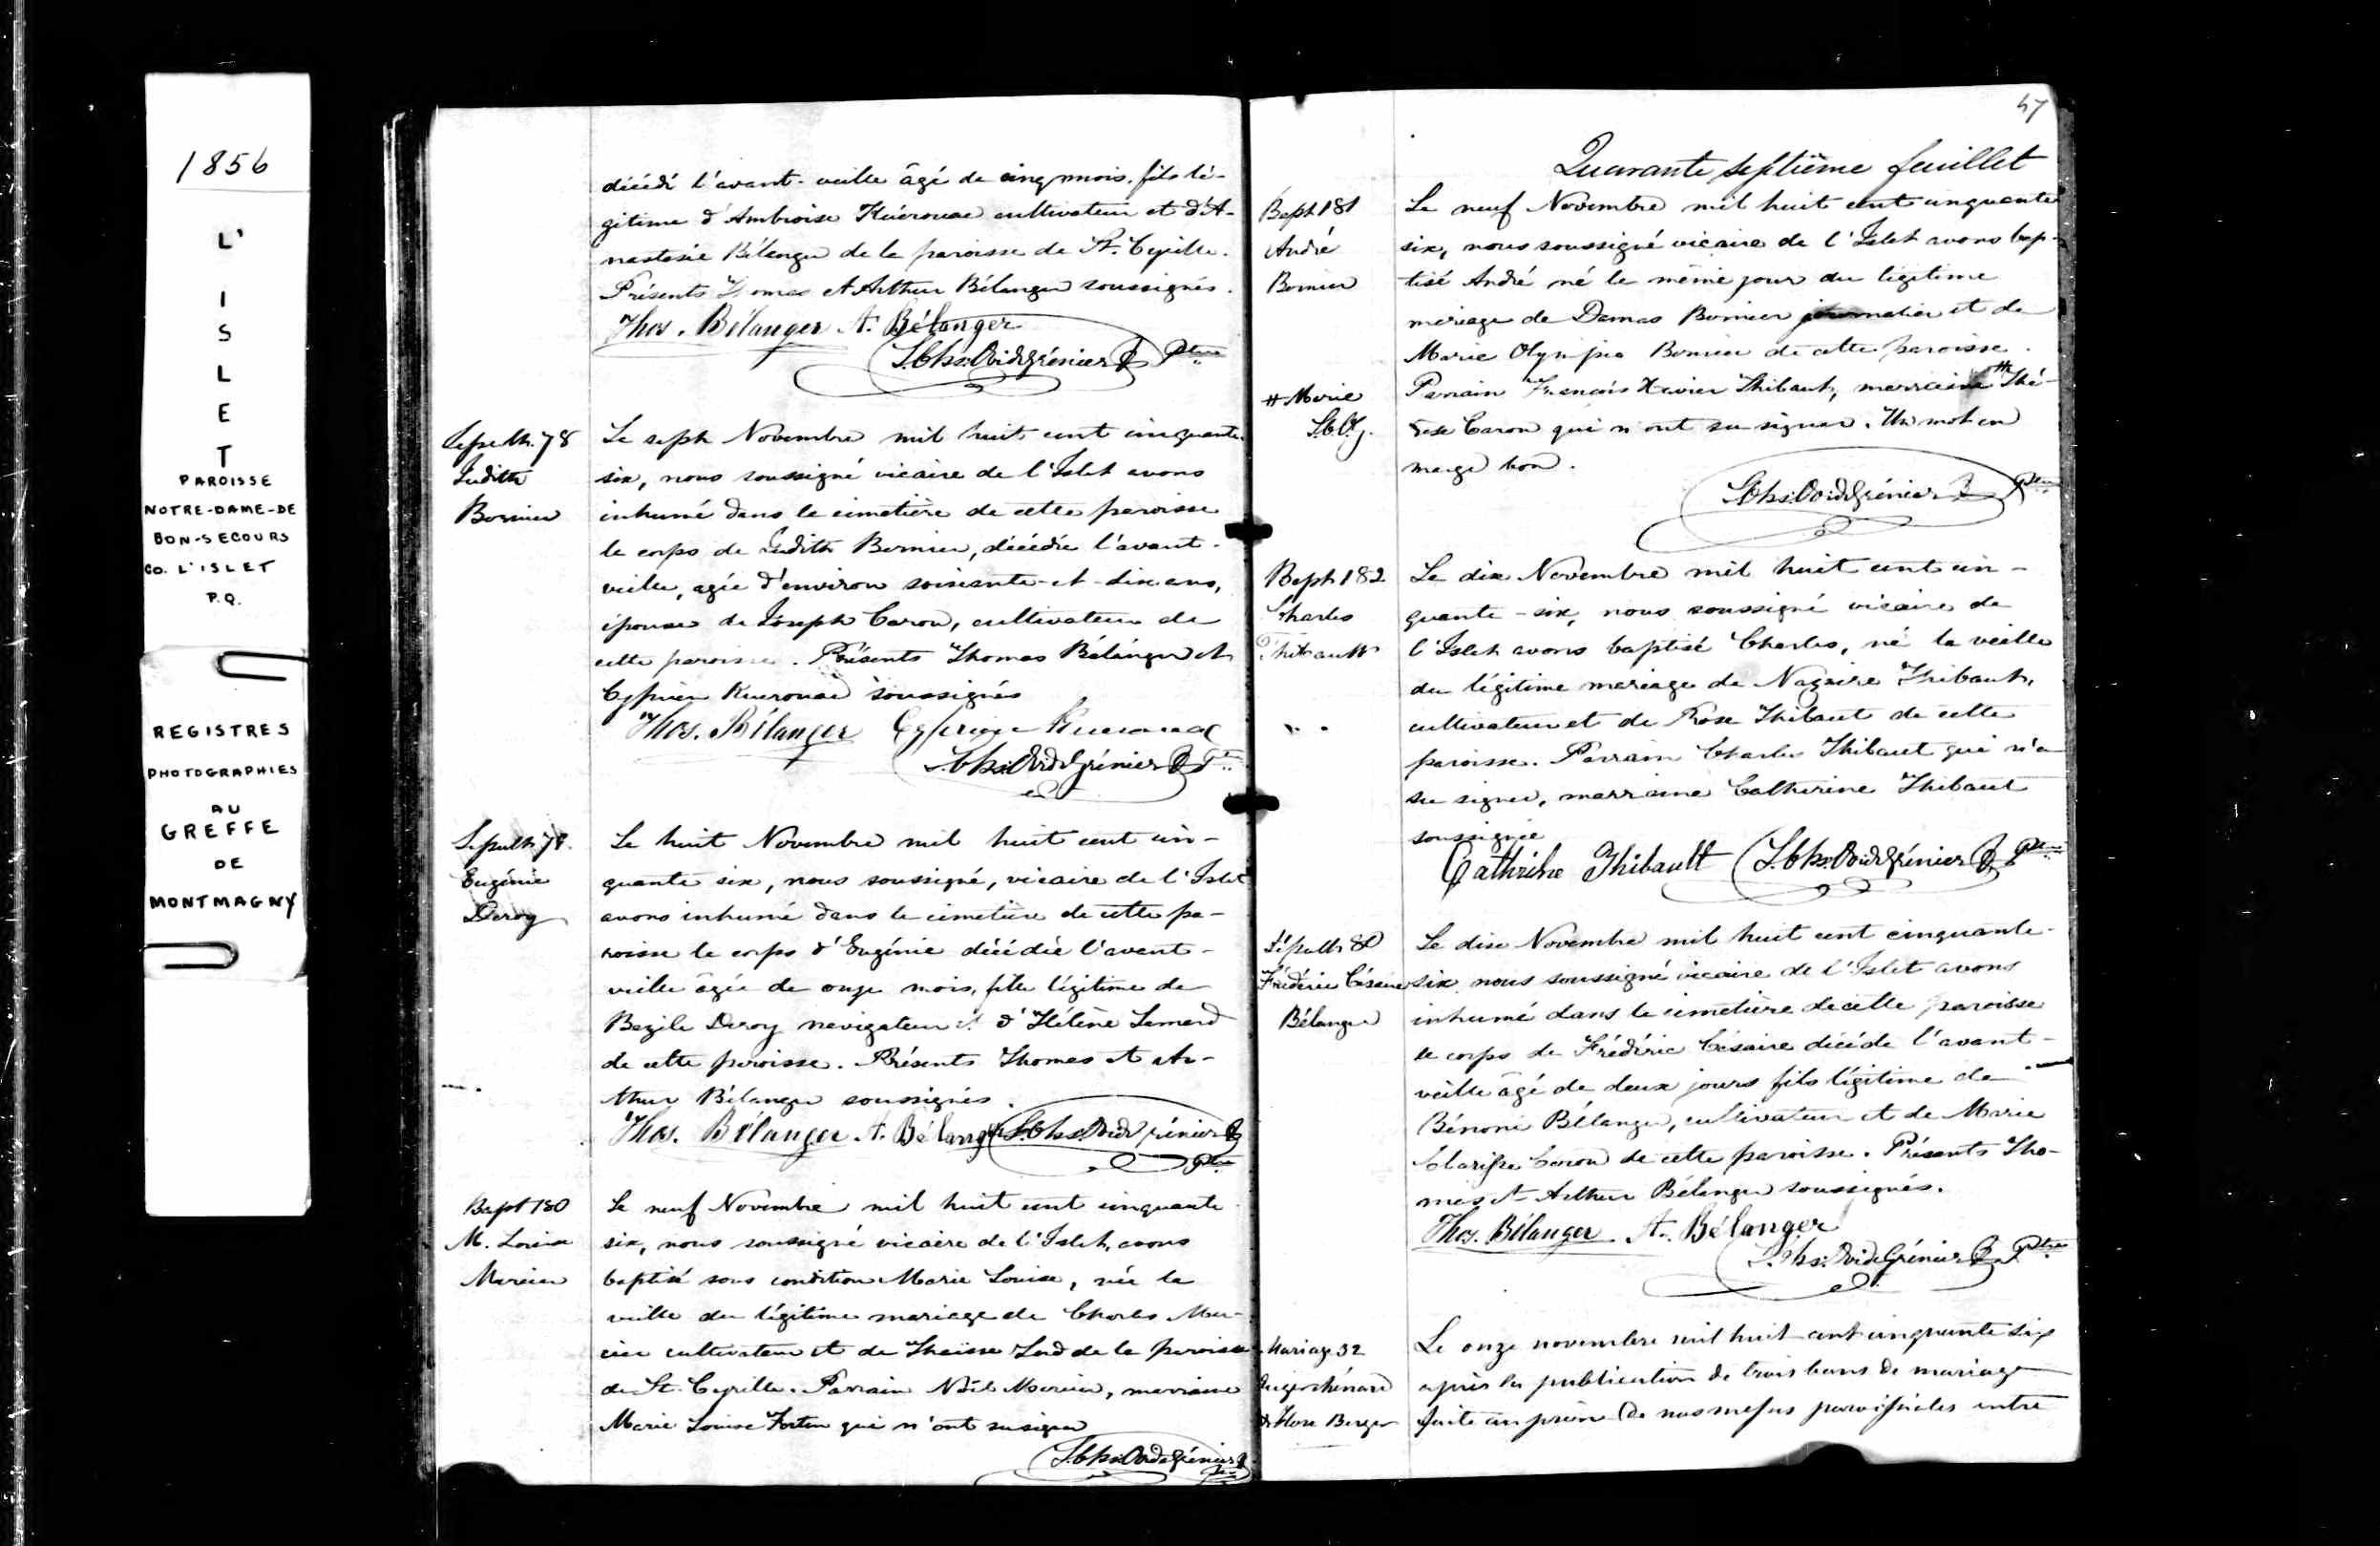 1856
L'
I
S
L
E
T
PAROISSE
NOTRE-DAME-DE
BON-SECOURS
CO. L'ISLET
P.Q.
REGISTRES
PHOTOGRAPHIES
AU
GREFFE
DE
MONTMAGNY
décédé l'avant-veille âgé de cinq mois, fils lé-
gitime d'Ambroise Kuérouac cultivateur et d'A-
nastasie Bélanger de la paroisse de St. Cyrille.
Présents Thomas et Arthur Bélanger soussignés.
Thos. Bélanger A. Bélanger
Ptre
Sepulth. 78
Judith
Bernier
Le sept Novembre mil huit cent cinquante-
six, nous soussigné vicaire de l'Islet avons
inhumé dans le cimetière de cette paroisse
le corps de Judith Bernier, décédée l'avant-
veille, agée d'environ soixante-et-dix ans,
épouse de Joseph Caron, cultivateur de
cette paroisse. Présents Thomas Bélanger et
Cyprien Kuerouac soussignés
Thos. Bélanger Cyprien Kuerouac
Ptre
Sepulth. 78.
Eugénie
Deroy
Le huit Novembre mil huit cent cin-
quante six, nous soussigné, vicaire de l'Islet
avons inhumé dans le cimetière de cette pa-
roisse le corps d'Eugénie décédée l'avant-
veille âgée de onze mois, fille légitime de
Bazile Deroy navigateur et d'Hélène
de cette paroisse. Présents Thomas et Ar-
thur Bélanger soussignés.
Thos. Bélanger A. Bélanger
Ptre
Bapt 180
M. Louise
Mercier
Le neuf Novembre mil huit cent cinquante
six, nous soussigné vicaire de l'Islet, avons
baptisé sous condition Marie Louise, née la
veille du légitime mariage de Charles Mer-
cier cultivateur et de Lord de la paroisse
de St. Cyrille. Parrain Noël Mercier, marraine
Marie Louise Fortin qui n'ont su signer
Ptre
47
Quarante septième feuillet
Bapt 181
André
Bernier
Le neuf Novembre mil huit cent cinquante
six, nous soussigné vicaire de l'Islet avons bap-
tisé André né le même jour du légitime
mariage de Damas Bernier journalier et de
Marie Olympe Bernier de cette paroisse.
# Marie
Parrain Francois Xavier Thibaut, marraine # Thé-
rèse Caron qui n'ont su signer. Un mot en
marge bon.
Ptre
Bapt 182
Charles
Thibault
Le dix Novembre mil huit cent cin-
quante-six, nous soussigné vicaire de
l'Islet avons baptisé Charles, né la veille
du légitime mariage de Nazaire Thibaut,
cultivateur et de Rose Thibaut de cette
paroisse. Parrain Charles Thibaut qui n'a
su signer, marraine Catherine Thibaut
soussignée
Cathrine Thibault
Ptre
Sépulth 80
Frédéric Césaire
Bélanger
Le dix Novembre mil huit cent cinquante-
six nous soussigné vicaire de l'Islet avons
inhumé dans le cimetière de cette paroisse
le corps de Frédéric Césaire décédé l'avant-
veille âgé de deux jours fils légitime de
Bénoni Bélanger, cultivateur et de Marie
Clarisse Caron de cette paroisse. Présents Tho-
mas et Arthur Bélanger soussignés.
Thos. Bélanger A. Bélanger
Ptre
Mariage 32
Le onze novembre mil huit cent cinquante six
après la publication de trois bans de mariage
faite au prône de nos messes paroissiales entre